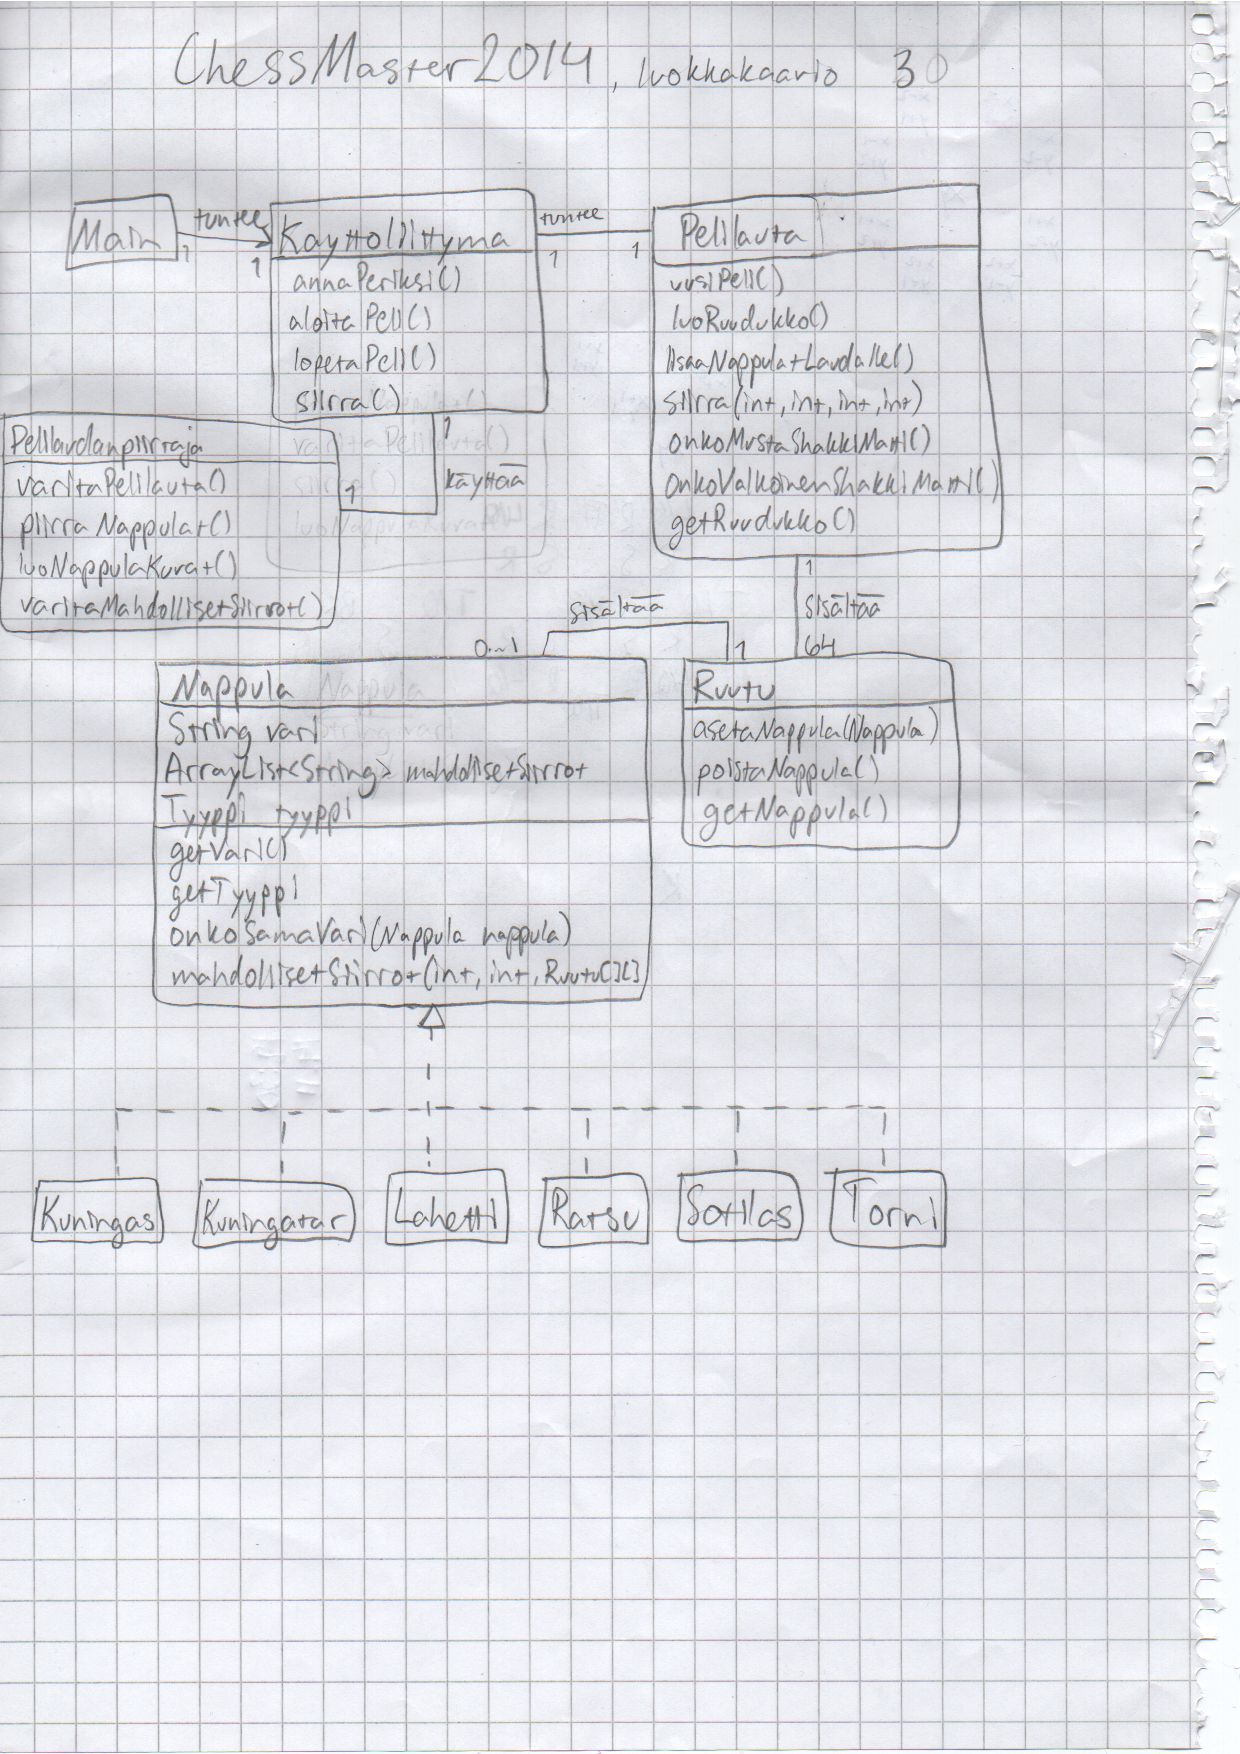 ChessMaster2014, luokkakaavio 30
Main
tuntee
1
1
Kayttoliittyma
annaPeriksi()
aloitaPeli()
lopetaPeli()
siirra()
tuntee
1
1
Pelilauta
uusiPeli()
luoRuudukko()
lisaaNappulatLaudalle()
siirra(int, int, int, int)
onkoMustaShakkiMatti()
onkoValkoinenShakkiMatti()
getRuudukko()
1
käyttää
1
Pelilaudanpiirraja
varitaPelilauta()
piirraNappulat()
luoNappulaKuvat()
varitaMahdollisetSiirrot()
1
sisältää
64
sisältää
0...1
1
Nappula
String vari
ArrayList<String> mahdollisetSiirrot
Tyyppi tyyppi
getVari()
getTyyppi
onkoSamaVari(Nappula nappula)
mahdollisetSiirrot(int, int, Ruutu[][]
Ruutu
asetaNappula(Nappula)
poistaNappula()
getNappula()
Kuningas
Kuningatar
Lahetti
Ratsu
Sotilas
Torni